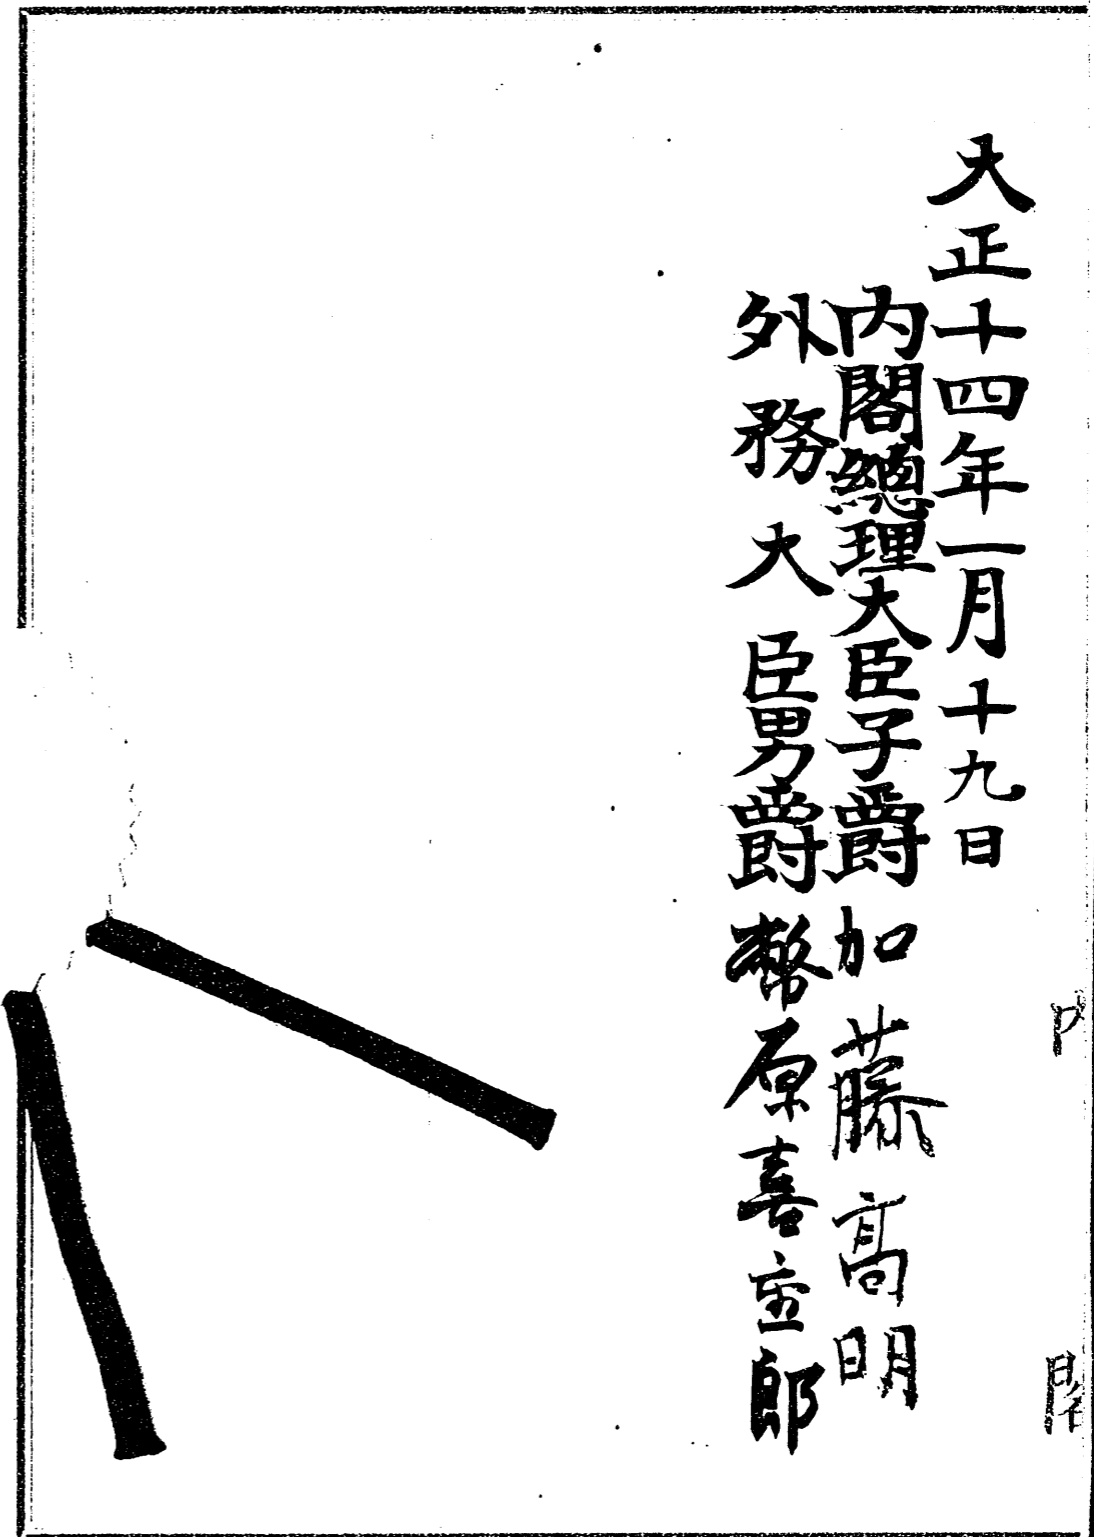 大正十四年一月十九日
内閣總理大臣子爵加藤高明
外務大臣男爵幣原喜重郎
内
閣